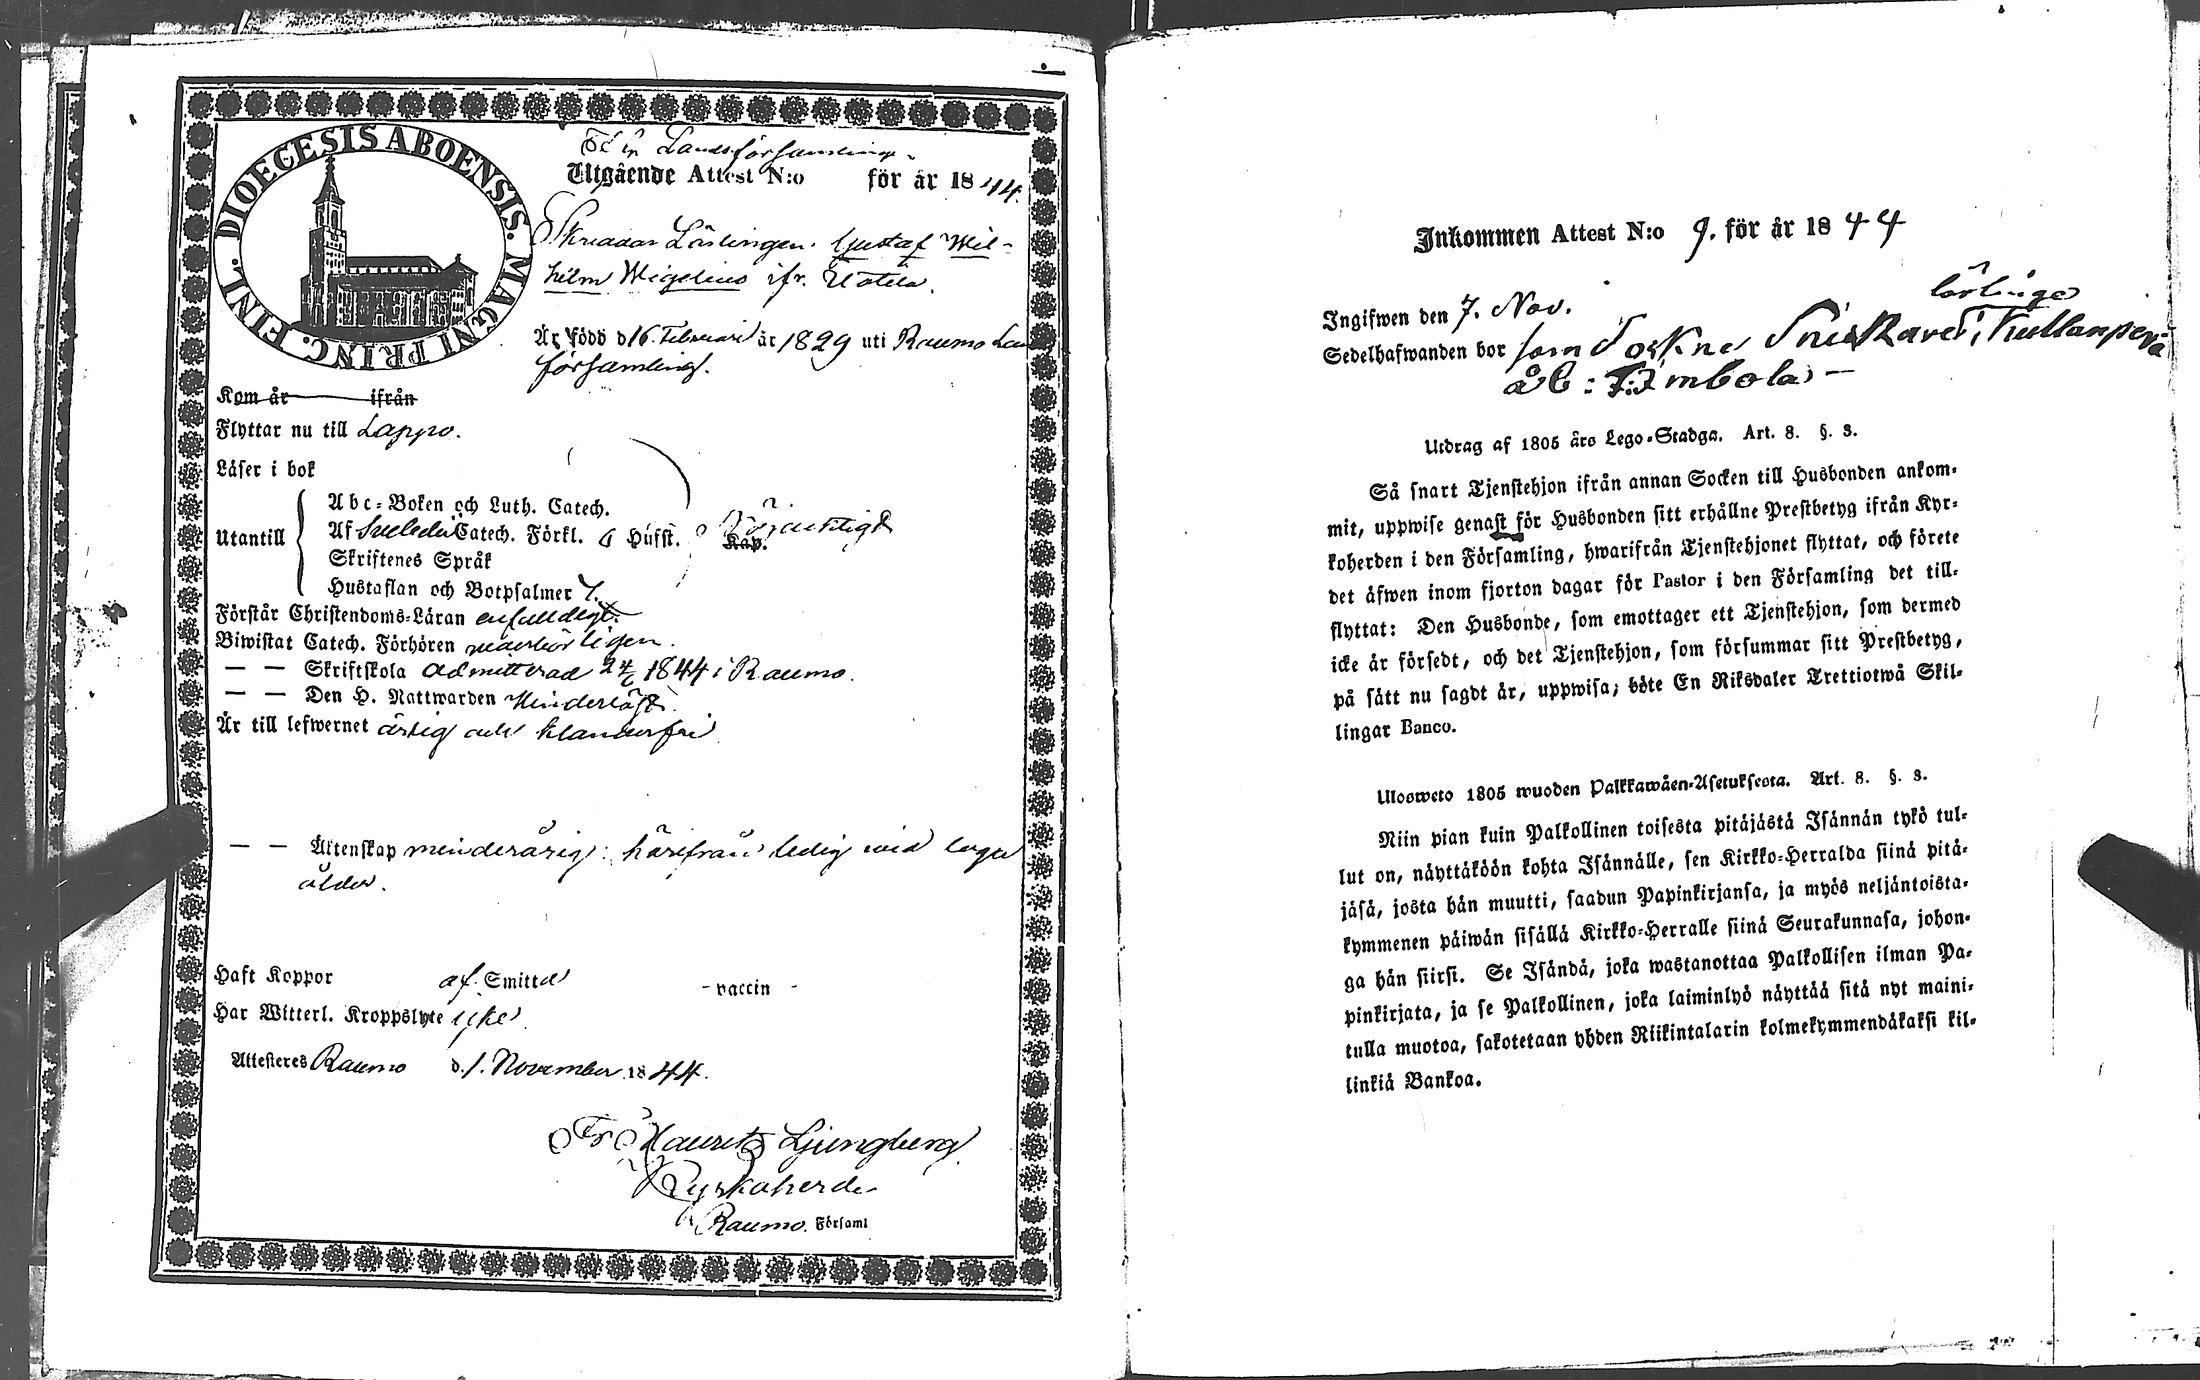 DIOECESIS ABOENSIS. MAGNI PRINC. FINL.
Landsförsamling
Utgående Attest N:o för år 1844.
Skräddar Lärlingen Gustaf Wil-
helm Wigelius ifr.
Är född d 16 Februari år 1829 uti Raumo Lands
församling.
Kom år ifrån
Flyttar nu till Lappo.
Läser i bok
Utantill
Abc-Boken och Luth. Catech.
Af Svebelii Catech. Förkl. 6 Hufst. Kap. Försvarligt
Skriftenes Språk
Hustaflan och Botpsalmer 7.
Förstår Christendoms-Läran enfaldigt.
Biwistat Catech. Förhören
— — Skriftskola admitterad 24/6 1844 i Raumo.
— — Den H. Nattwarden
Är till lefwernet ärlig och klanderfri
— — Äktenskap minderårig: härifrån ledig wid laga
ålder.
Haft Koppor af. Smittd - vaccin -
Har Witterl. Kroppslyte icke
Attesteres Raumo d. 1. November 1844.
Fr. Mauritz Ljungberg.
Kyrkoherde
i Raumo. Församl
Inkommen Attest N:o 9. för år 1844
Ingifwen den 7. Nov.
lärlinge
Sedelhafwanden bor som Sockne Skräddare i Kullanperä
ål:
Utdrag af 1805 års Lego-Stadga. Art. 8. §. 3.
Så snart Tjenstehjon ifrån annan Socken till Husbonden ankom-
mit, uppwise genast för Husbonden sitt erhållne Prestbetyg ifrån Kyr-
koherden i den Församling, hwarifrån Tjenstehjonet flyttat, och förete
det äfwen inom fjorton dagar för Pastor i den Församling det till-
flyttat: Den Husbonde, som emottager ett Tjenstehjon, som dermed
icke är försedt, och det Tjenstehjon, som försummar sitt Prestbetyg,
på sätt nu sagdt är, uppwisa; böte En Riksdaler Trettiotwå Skil-
lingar Banco.
Ulosweto 1805 wuoden Palkkawäen-Asetuksesta. Art. 8. §. 3.
Niin pian kuin Palkollinen toisesta pitäjästä Isännän tykö tul-
lut on, näyttäköön kohta Isännälle, sen Kirkko-Herralda siinä pitä-
jäsä, josta hän muutti, saadun Papinkirjansa, ja myös neljäntoista-
kymmenen päiwän sisällä Kirkko-Herralle siinä Seurakunnasa, johon-
ga hän siirsi. Se Isändä, joka wastanottaa Palkollisen ilman Pa-
pinkirjata, ja se Palkollinen, joka laiminlyö näyttää sitä nyt maini-
tulla muotoa, sakotetaan yhden Riikintalarin kolmekymmendäkaksi kil-
linkiä Bankoa.